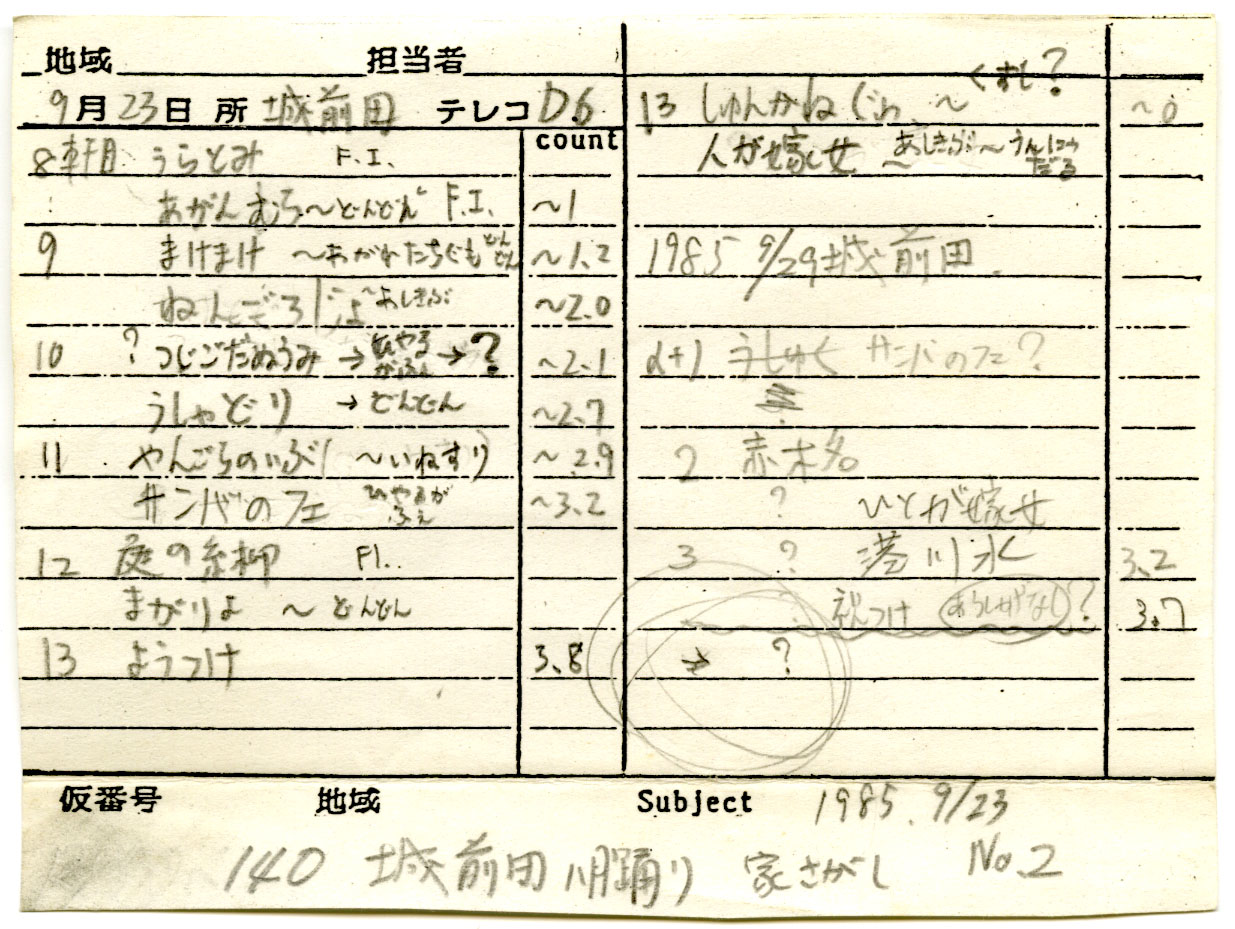 地域 担当者
9月23日 所 城前田 テレコ D.6
count
8軒目 うらとみ F.I.
あがんむら〜どんどん F.I. 〜1
9 まけまけ 〜あがれたちぐも どんどん 〜1.2
ねんごろじょ〜あしきぶ 〜2.0
10 ? つじごだぬうみ → ひやるがふえ → ? 〜2.1
うしゃどり → どんどん 〜2.7
11 やんごらのいぶし 〜いねすり 〜2.9
サンバのフェ ひやるがふえ 〜3.2
12 庭の糸柳 FI..
まがりよ 〜 どんどん
13 ようつけ 3.8
13 しゅんかねぐゎ 〜 くずし? 〜0
人が嫁女 あしきぶ〜うんにゃだる
1985 9/29 城前田
d+1 サンバのフェ?
2 赤木名
? ひとが嫁女
3 ? 港川水 3.2
祝つけ ? 3.7
→ ?
仮番号 地域 Subject 1985.9/23
140 城前田 八月踊り 家さがし No.2